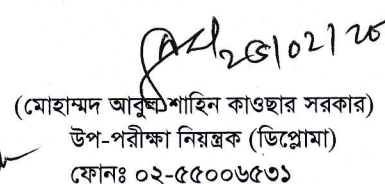 ২৫/০২/২০
(মোহাম্মদ আবুল শাহিন কাওছার সরকার)
উপ-পরীক্ষা নিয়ন্ত্রক (ডিপ্লোমা)
ফোনঃ ০২-৫৫০০৬৫৩১